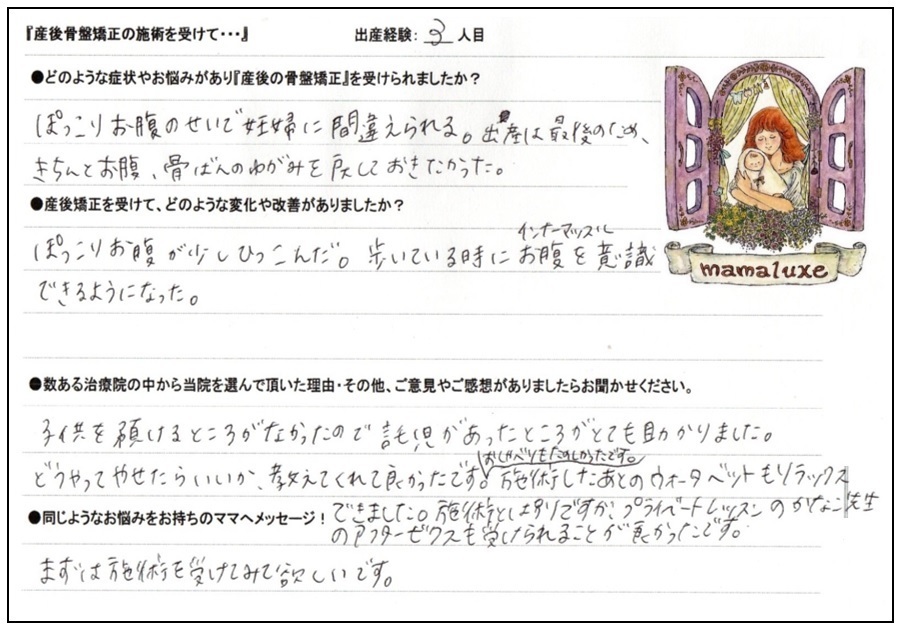 『産後骨盤矯正の施術を受けて・・・』　出産経験：3 人目
●どのような症状やお悩みがあり『産後の骨盤矯正』を受けられましたか？
ぽっこりお腹のせいで妊婦に間違えられる。出産は最後のため、
きちんとお腹、骨ばんのゆがみを戻しておきたかった。
●産後矯正を受けて、どのような変化や改善がありましたか？
インナーマッスル
ぽっこりお腹が少しひっこんだ。歩いている時にお腹を意識
できるようになった。
mamaluxe
●数ある治療院の中から当院を選んで頂いた理由・その他、ご意見やご感想がありましたらお聞かせください。
子供を預けるところがなかったので託児があったところがとても助かりました。
おしゃべりもたのしかったです。
どうやってやせたらいいか、教えてくれて良かったです。施術したあとのウォータベットもリラックス
できました。施術とは別ですが、プライベートレッスンのかなこ先生
●同じようなお悩みをお持ちのママへメッセージ！
のアフターゼクスも受けられることが良かったです。
まずは施術を受けてみて欲しいです。